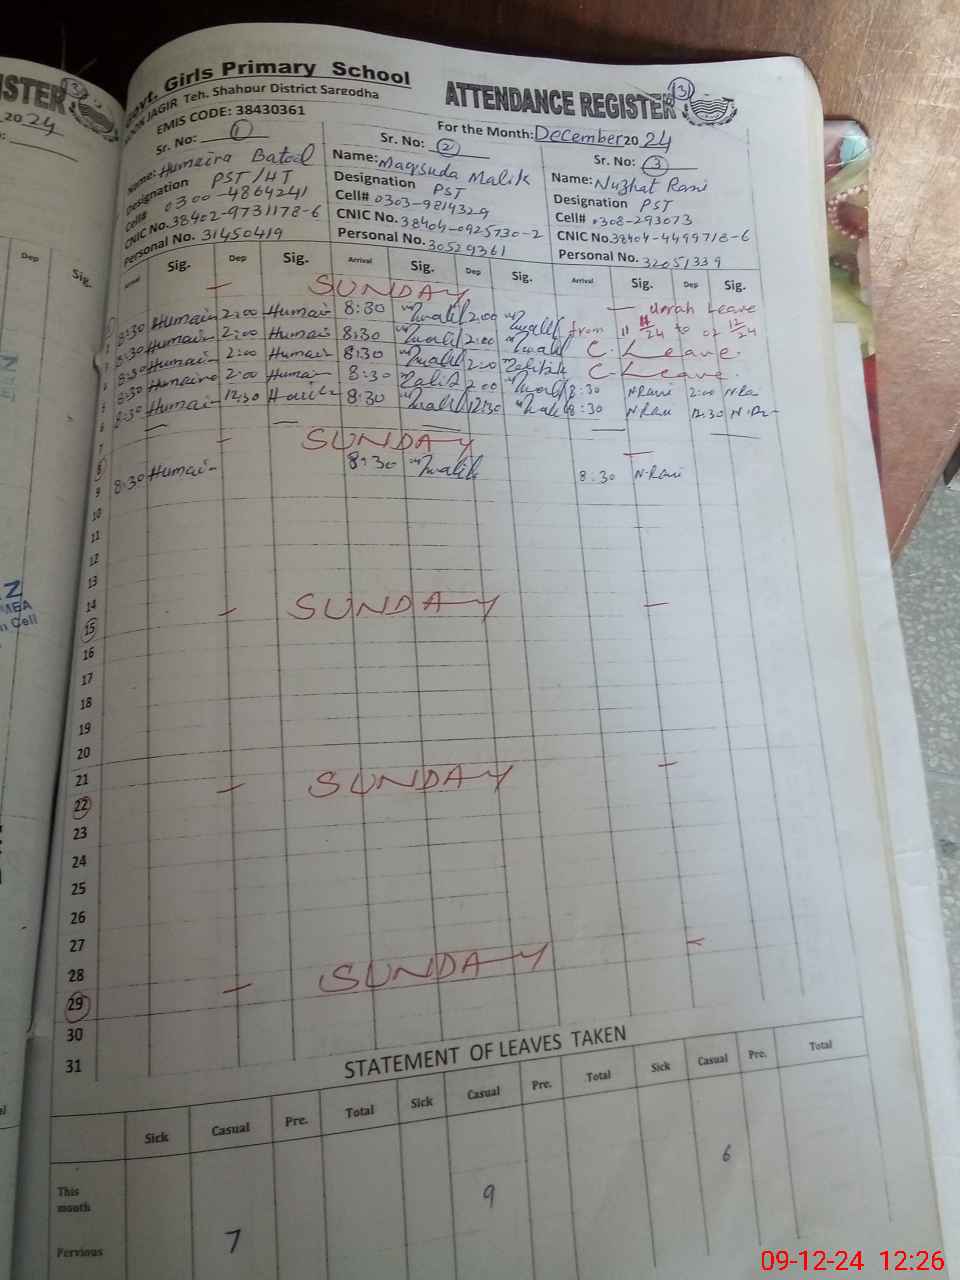 STER
13
20 24
Dep
Sig.
Z
MBA
n Cell
Govt. Girls Primary School
JAGIR Teh. Shahpur District Sargodha
EMIS CODE: 38430361
ATTENDANCE REGISTER 13
For the Month: December 2024
Sr. No: 1
Sr. No: 2
Sr. No: 3
Name: Humaira Batool
Designation PST/HT
Cell# 0300-4864241
CNIC No. 38402-9731178-6
Personal No. 31450419
Name: Maqsuda Malik
Designation PST
Cell# 0303-9814329
CNIC No. 38404-0925730-2
Personal No. 30529361
Name: Nuzhat Rani
Designation PST
Cell# 0308-293073
CNIC No. 38404-4499718-6
Personal No. 32051339
Arrival Sig. Dep Sig. Arrival Sig. Dep Sig. Arrival Sig. Dep Sig.
1 – SUNDAY –
2 8:30 Humair 2:00 Humair 8:30 Malik 2:00 Malik Umrah Leave from 11 11/24 to 02 12/24
3 8:30 Humair 2:00 Humair 8:30 Malik 2:00 Malik C. Leave.
4 8:30 Humair 2:00 Humair 8:30 Malik 2:00 Malik C. Leave.
5 8:30 Humaira 2:00 Humair 8:30 Malik 2:00 Malik 8:30 N.Rani 2:00 N.Ra
6 8:30 Humair 12:30 8:30 Malik 12:30 Malik 8:30 N.Rani 12:30
7
8 – SUNDAY –
9 8:30 Humair 8:30 Malik 8:30 N.Rani
10
11
12
13
14
15 – SUNDAY –
16
17
18
19
20
21
22 – SUNDAY –
23
24
25
26
27
28
29 – SUNDAY –
30
31
STATEMENT OF LEAVES TAKEN
Sick Casual Pre. Total Sick Casual Pre. Total Sick Casual Pre. Total
This month 9 6
Pervious 7
09-12-24 12:26